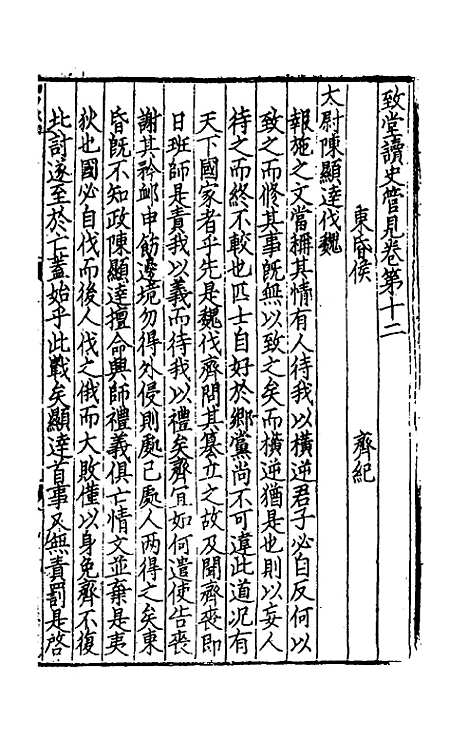 致堂讀史管見卷第十二
東昏侯　齊紀
太尉陳顯達伐魏
報施之文當稱其情有人待我以橫逆君子必自反何以
致之而脩其事旣無以致之矣而橫逆猶是也則以妄人
待之而終不較也匹士自好於鄉黨尚不可違此道况有
天下國家者乎先是魏伐齊問其篡立之故及聞齊喪即
日班師是責我以義而待我以禮矣齊宜如何遣使告喪
謝其矜䘏申飭邊境勿得外侵則處己處人两得之矣東
昏旣不知政陳顯達擅命興師禮義俱亡情文並棄是夷
狄也國必自伐而後人伐之俄而大敗僅以身免齊不復
北討遂至於亡蓋始乎此戰矣顯達首事又無責罰是啓